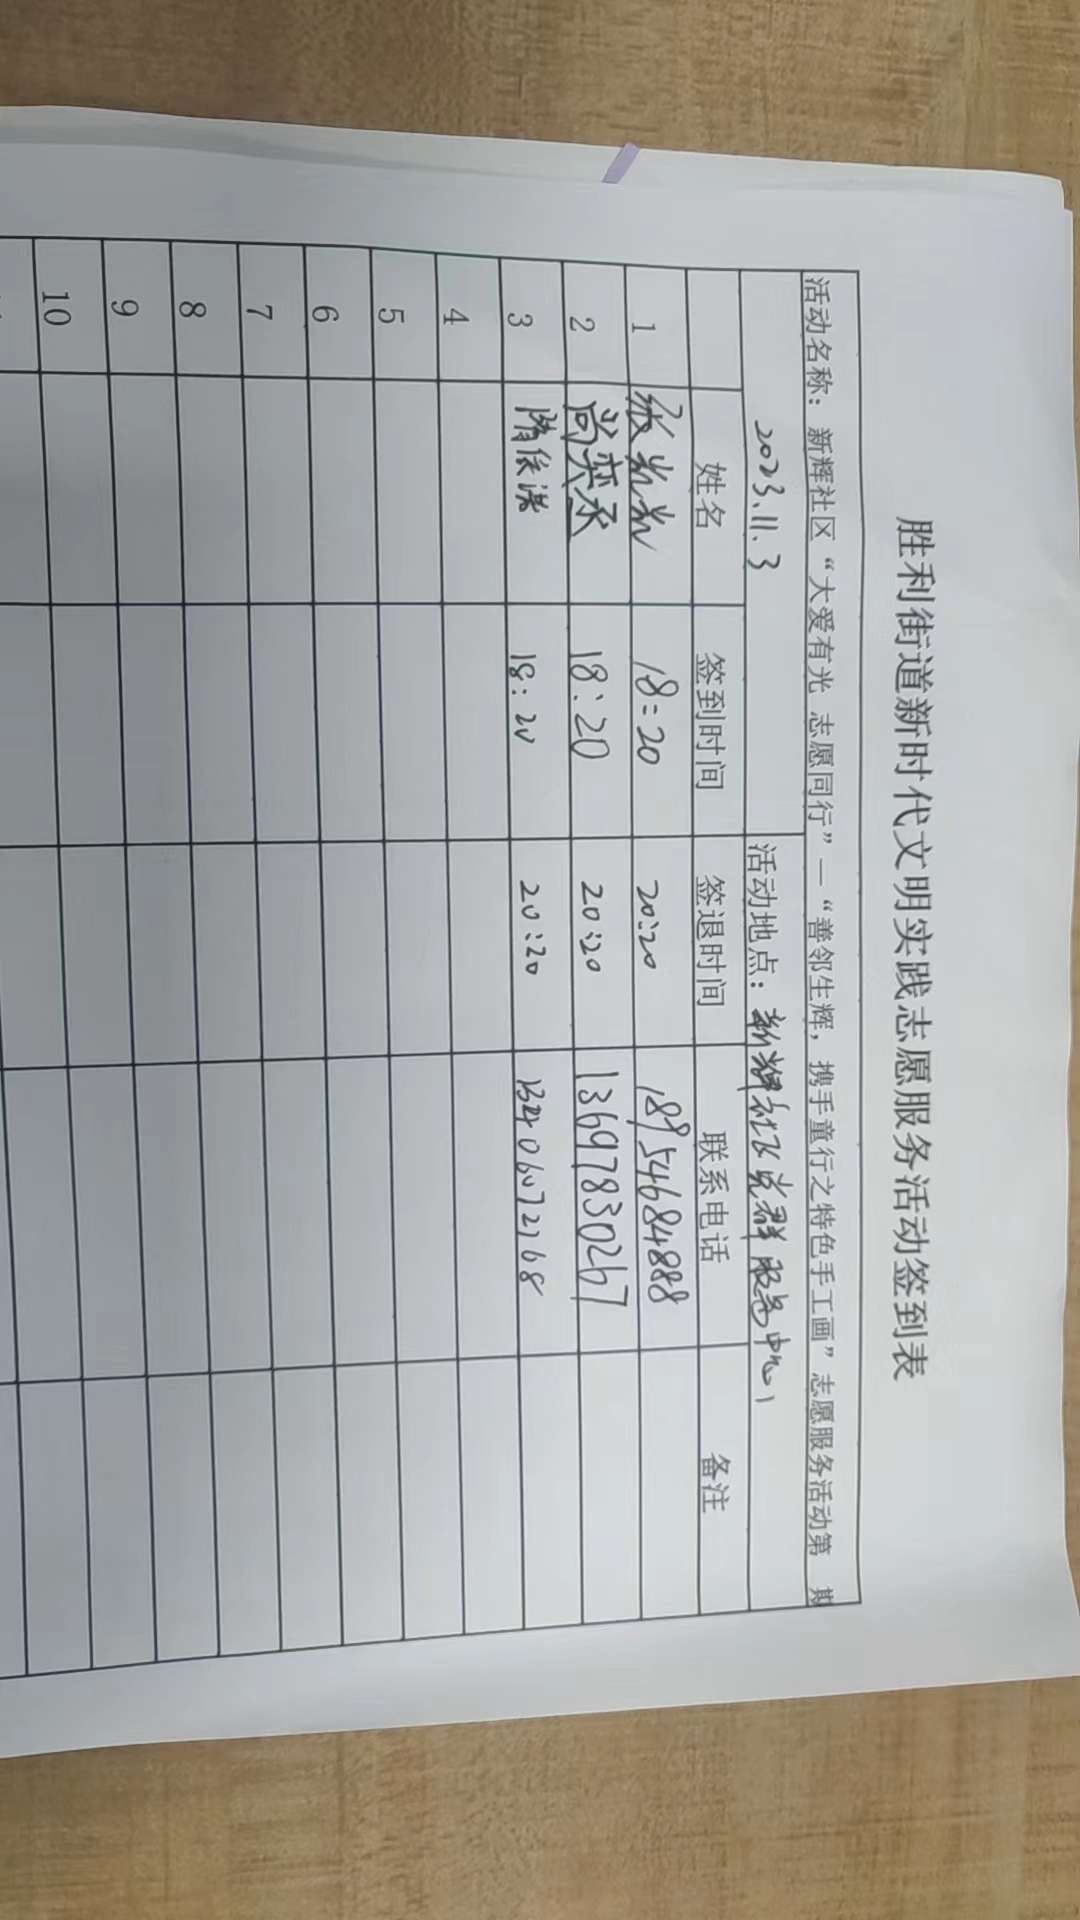 胜利街道新时代文明实践志愿服务活动签到表
活动名称：新辉社区“大爱有光 志愿同行”—“善邻生辉，携手童行之特色手工画”志愿服务活动第 期
2023.11.3 活动地点：新辉社区党群服务中心
姓名 签到时间 签退时间 联系电话 备注
1 18:20 20:20 18954684888
2 尚奕承 18:20 20:20 13697830267
3 18:20 20:20
4
5
6
7
8
9
10